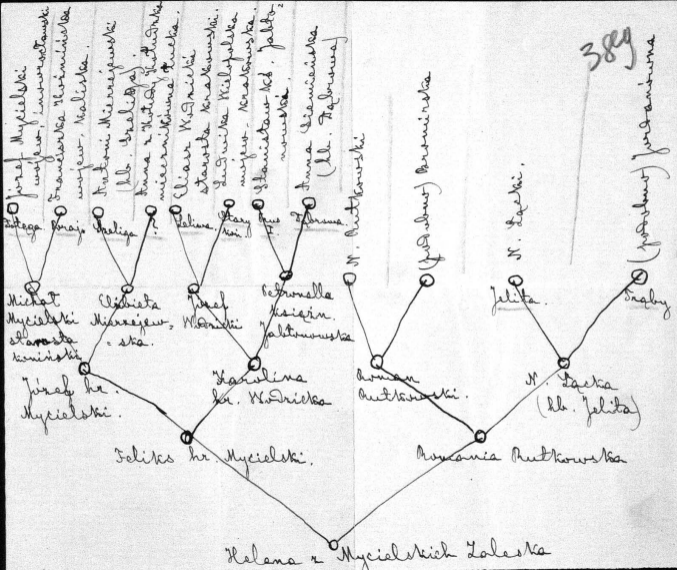 389
Józef Mycielski
wojew. inowrocławski
Franciszka Koźmińska
wojew. kaliska.
Antoni Mierzejewski
(hb. Szeliga).
Anna z
miecznikówna
Eliasz Wodzicki
starosta krakowski.
Ludwika Wielopolska
wojew. krakowska.
Stanisław ks. Jabło-
nowski.
Anna
(hb. Dąbrowa)
N. Rutkowski
(podobno) Bronirska
N. Łącki.
(podobno) Jordanówna
Dołęga
Poraj
Szeliga
?
Leliwa.
Stary
koń.
Prus
Dąbrowa.
Jelita.
Trąby
Michał
Mycielski
starosta
koniński
Elżbieta
Mierzejew=
=ska.
Józef
Wodzicki
Petronella
księżn.
Jabłonowska
Józef hr.
Mycielski.
Karolina
hr. Wodzicka
Roman
Rutkowski.
N. Łącka
(hb. Jelita)
Feliks hr. Mycielski.
Romania Rutkowska
Helena z Mycielskich Zaleska